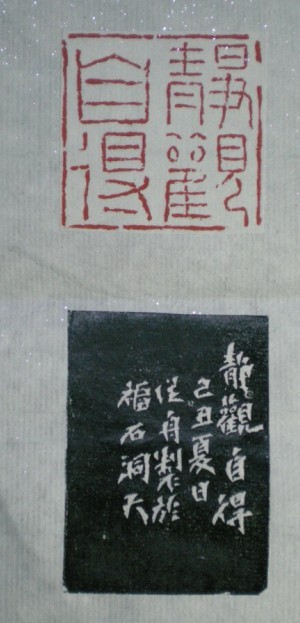 靜觀
自得
靜觀自得
己丑夏日
從舟製於
福石洞天